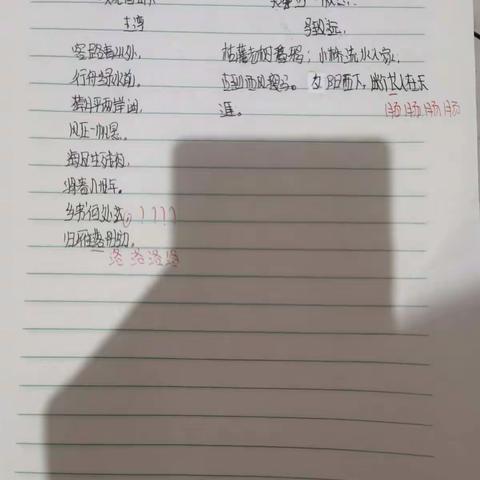 王湾
客路青山外,
行舟绿水前。
潮平两岸阔,
风正一帆悬。
海日生残夜,
春入旧年。
乡书何处达。????
归雁洛阳边。
洛洛洛洛
马致远
枯藤老树昏鸦;小桥流水人家,
古道西风瘦马。夕阳西下,断人在天
肠肠肠肠
涯。